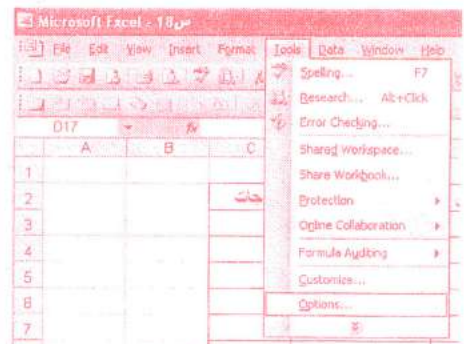 Microsoft Excel - ص18
File Edit View Insert Format Tools Data Window Help
Spelling... F7
Research... Alt+Click
Error Checking...
Shared Workspace...
Share Workbook...
Protection
Online Collaboration
Formula Auditing
Customize...
Options...
D17 fx
A B C
1
2
3
4
5
6
7